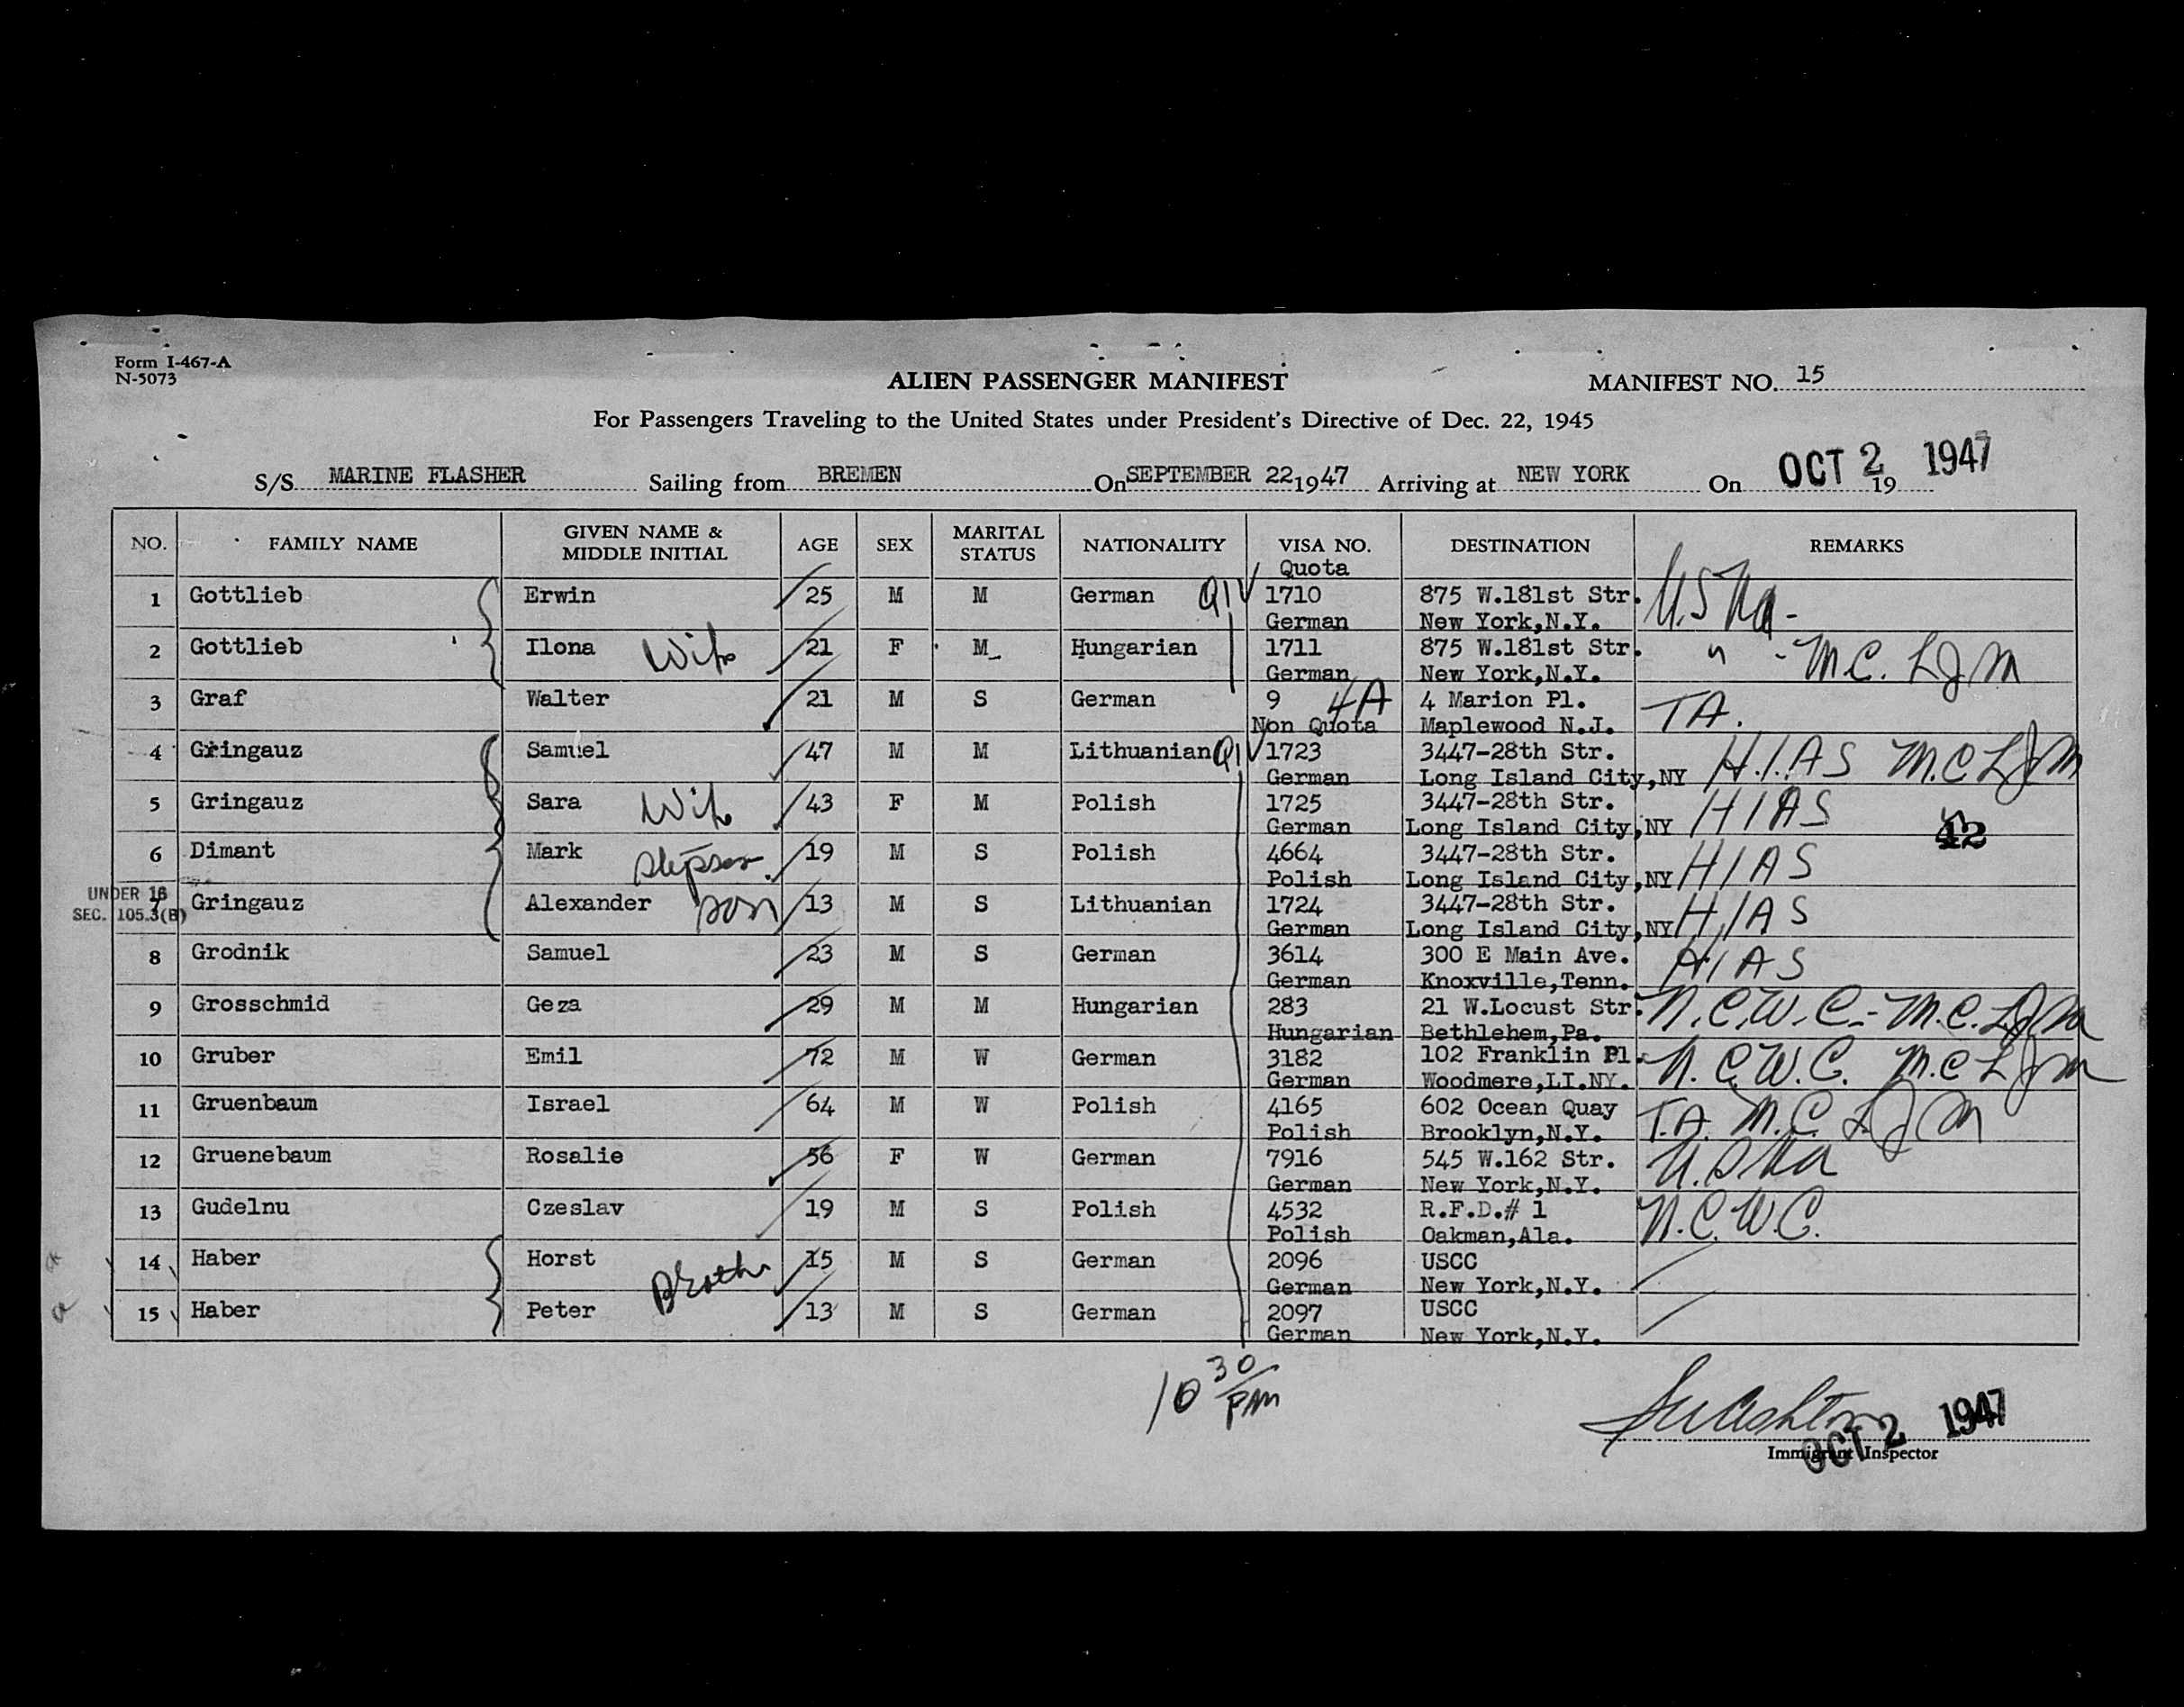 Form I-467-A
N-5073
ALIEN PASSENGER MANIFEST
MANIFEST NO. 15
For Passengers Traveling to the United States under President's Directive of Dec. 22, 1945
S/S MARINE FLASHER Sailing from BREMEN On SEPTEMBER 22 1947 Arriving at NEW YORK On OCT 2 1947 19
NO. FAMILY NAME GIVEN NAME & MIDDLE INITIAL AGE SEX MARITAL STATUS NATIONALITY VISA NO. DESTINATION REMARKS
Quota
1 Gottlieb Erwin 25 M M German QIV 1710 875 W.181st Str. U.S Na-
German New York,N.Y.
2 Gottlieb Ilona Wife 21 F M Hungarian 1711 875 W.181st Str. " - M.C. LJM
German New York,N.Y.
3 Graf Walter 21 M S German 9 4A 4 Marion Pl. TA.
Non Quota Maplewood N.J.
4 Gringauz Samuel 47 M M Lithuanian QIV 1723 3447-28th Str. H.I.AS M.C LJM
German Long Island City,NY
5 Gringauz Sara Wife 43 F M Polish 1725 3447-28th Str. HIAS
German Long Island City,NY 42
6 Dimant Mark stepson 19 M S Polish 4664 3447-28th Str. HIAS
Polish Long Island City,NY
UNDER 16
SEC. 105.3(B)
7 Gringauz Alexander son 13 M S Lithuanian 1724 3447-28th Str. HIAS
German Long Island City,NY
8 Grodnik Samuel 23 M S German 3614 300 E Main Ave. HIAS
German Knoxville,Tenn.
9 Grosschmid Geza 29 M M Hungarian 283 21 W.Locust Str. N.C.W.C.- M.C. LJM
Hungarian Bethlehem,Pa.
10 Gruber Emil 72 M W German 3182 102 Franklin Pl. N.C.W.C. M.C LJM
German Woodmere,LI.NY.
11 Gruenbaum Israel 64 M W Polish 4165 602 Ocean Quay T.A. M.C. LJM
Polish Brooklyn,N.Y.
12 Gruenebaum Rosalie 56 F W German 7916 545 W.162 Str. U.S Na
German New York,N.Y.
13 Gudelnu Czeslav 19 M S Polish 4532 R.F.D.# 1 N.C.W.C.
Polish Oakman,Ala.
14 Haber Horst 15 M S German 2096 USCC
German New York,N.Y.
15 Haber Peter Brother 13 M S German 2097 USCC
German New York,N.Y.
10 30/PM
OCT 2 1947
Immigrant Inspector